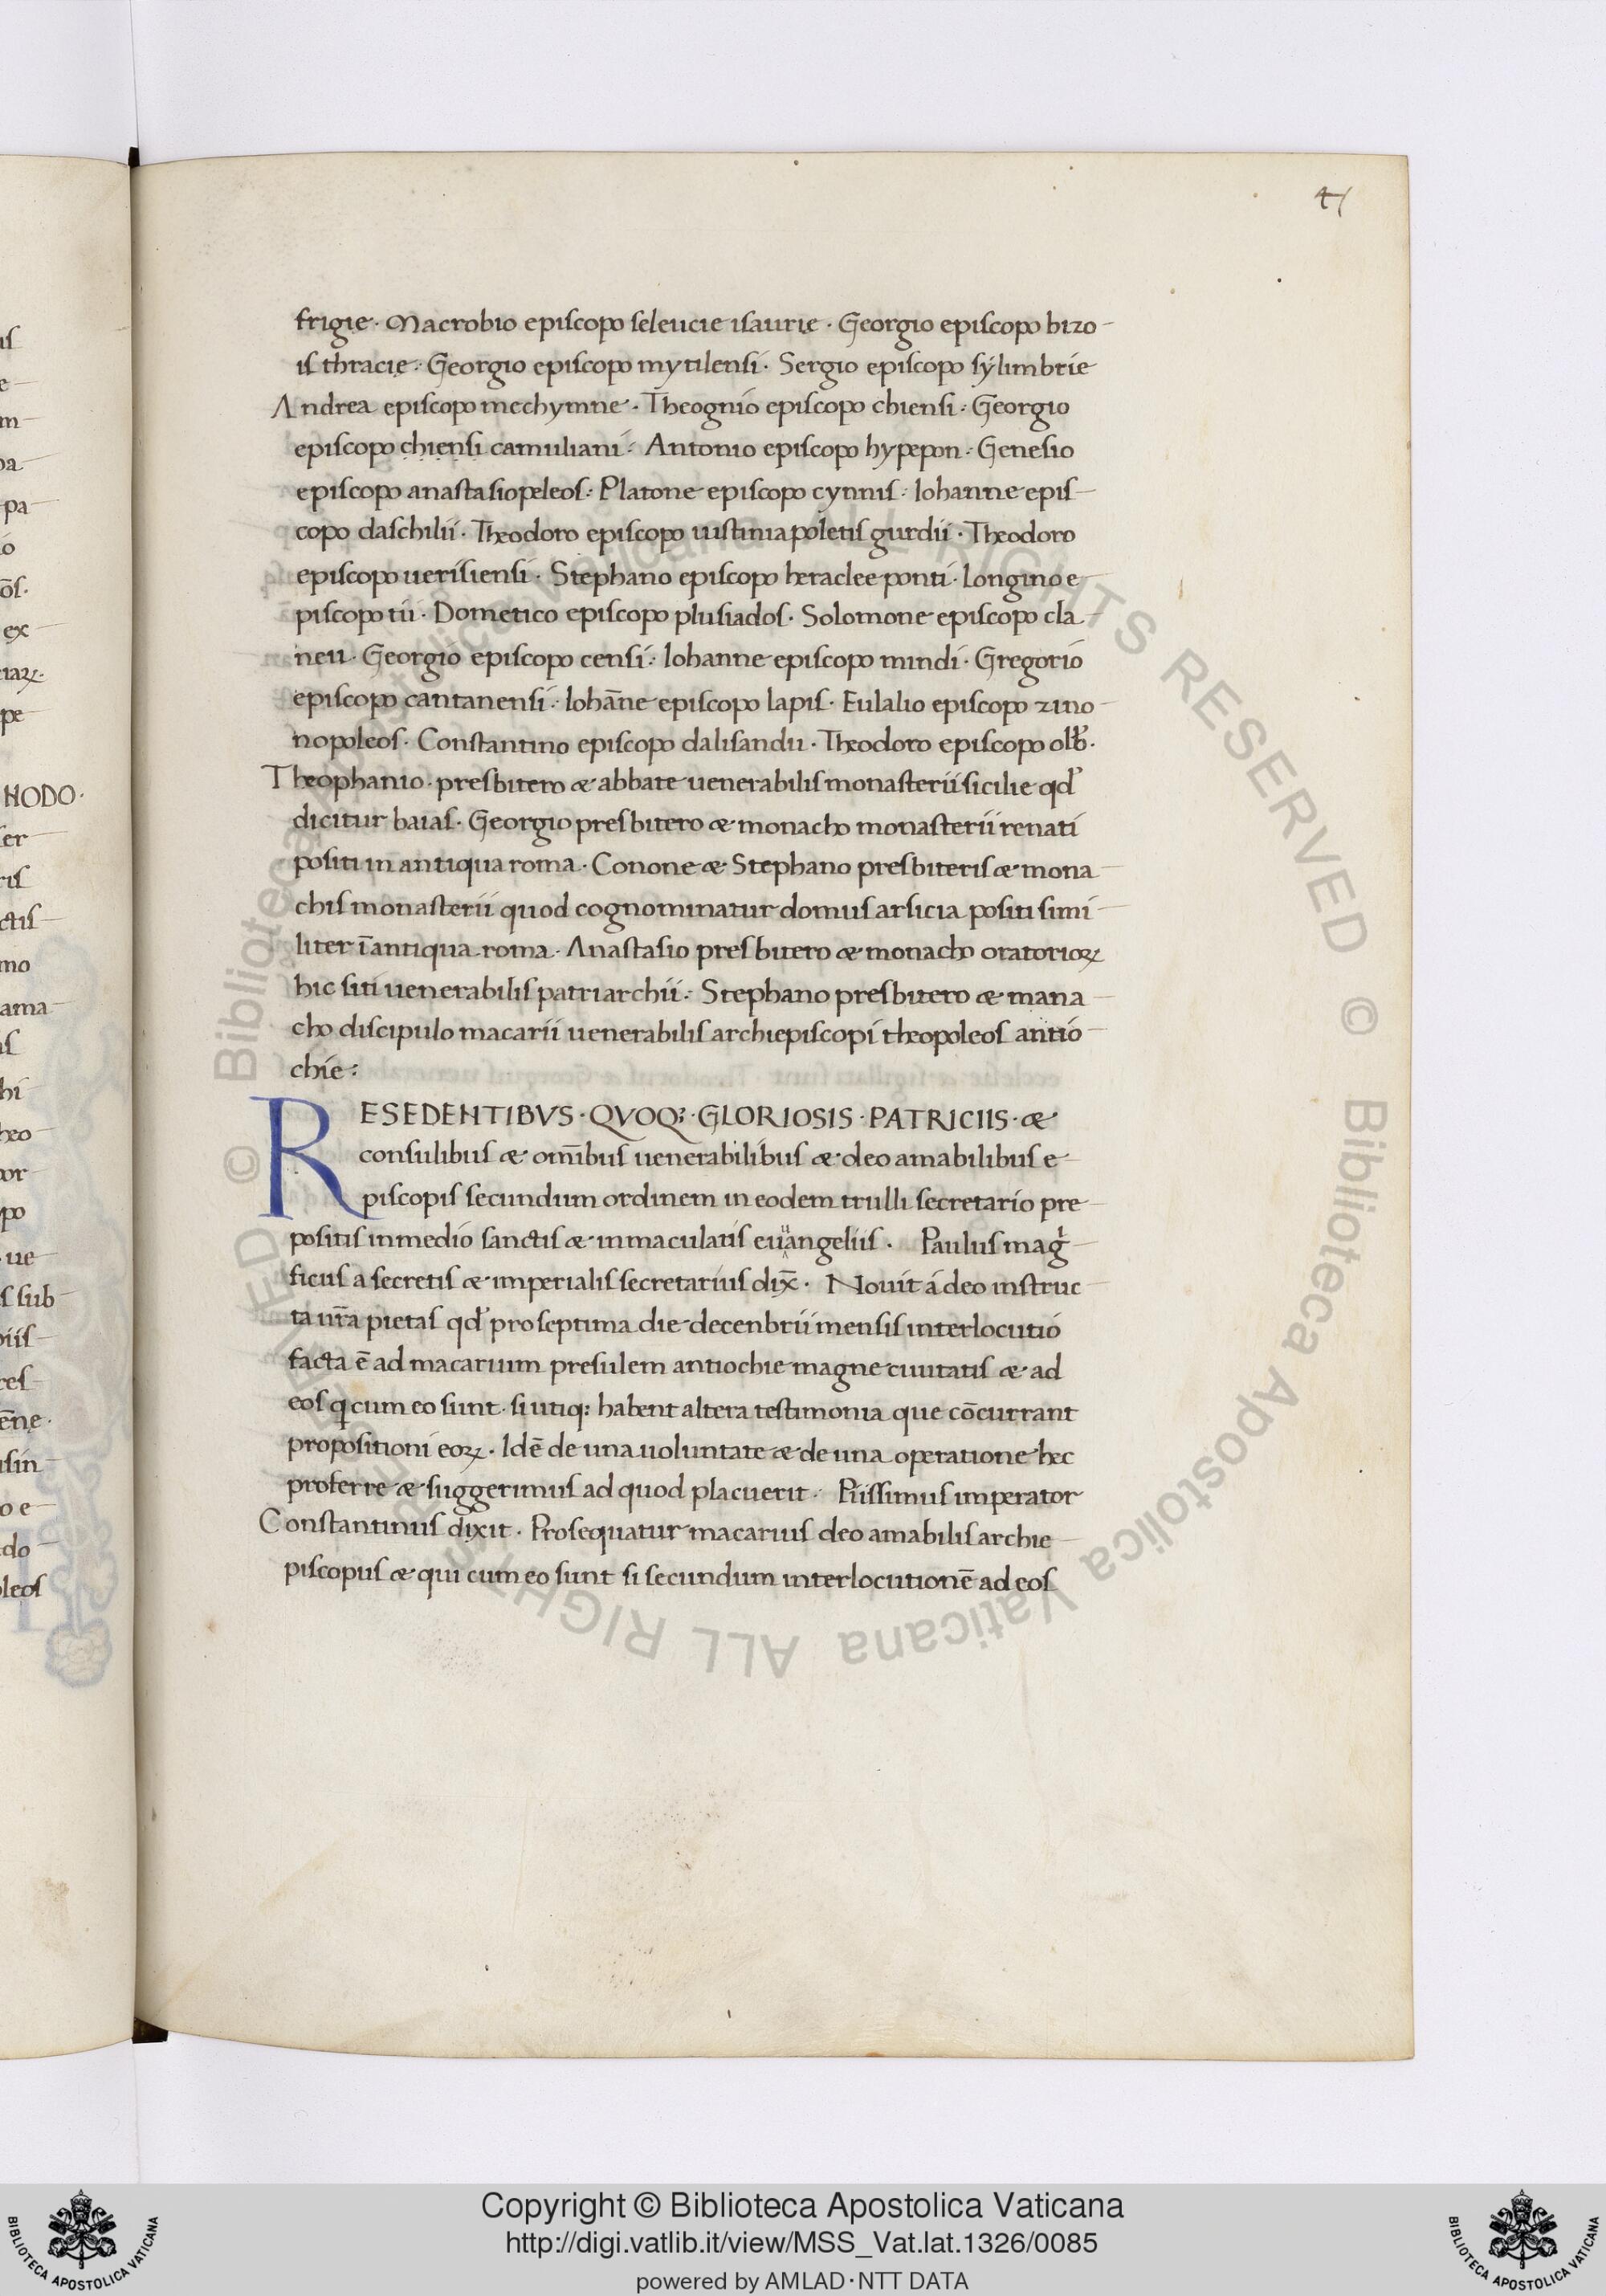 41
frigie· Macrobio episcopo seleucie isaurie · Georgio episcopo bizo
is thracie· Georgio episcopo mytilensi· Sergio episcopo sylimbrie
Andrea episcopo mechymne· Theognio episcopo chiensi· Georgio
episcopo chiensi camuliani· Antonio episcopo hypepon· Genesio
episcopo anastasiopeleos· Platone episcopo cynnis· Iohanne epis
copo daschilii· Theodoro episcopo iustiniapoletis gurdii· Theodoro
episcopo uerisiensi· Stephano episcopo heraclee ponti· Longino e
piscopo tii· Dometico episcopo plusiados· Solomone episcopo cla
neu· Georgio episcopo censi· Iohanne episcopo mindi· Gregorio
episcopo cantanensi· Iohāne episcopo lapis· Eulalio episcopo zino
nopoleos· Constantino episcopo dalisandu· Theodoro episcopo olb·
Theophanio· presbitero æ abbate uenerabilis monasterii sicilie qd
dicitur baias· Georgio presbitero æ monacho monasterii renati
positi in antiqua roma· Conone æ Stephano presbiteris æ mona
chis monasterii quod cognominatur domus arsicia positi simi
liter ī antiqua roma· Anastasio presbitero æ monacho oratorioꝝ
hic siti uenerabilis patriarchii· Stephano presbitero æ mana
cho discipulo macarii uenerabilis archiepiscopi theopoleos antio
chie:
RESEDENTIBVS·QVOQ;·GLORIOSIS·PATRICIIS·æ
consulibus æ om̄ibus uenerabilibus æ deo amabilibus e
piscopis secundum ordinem in eodem trulli secretario pre
positis in medio sanctis æ inmaculatis euuangeliis· Paulus mag
ficus a secretis æ imperialis secretarius dix̄· Nouit á deo instruc
ta ur̄a pietas qd pro septima die decenbrii mensis interlocutió
facta ē ad macarium presulem antiochie magne ciuitatis æ ad
eos q cum eo sunt· si utiq; habent altera testimonia que cōcurrant
propositioni eoꝝ· Idē de una uoluntate æ de una operatione hec
proferre æ suggerimus ad quod placuerit· Piissimus imperator
Constantinus dixit· Prosequatur macarius deo amabilis archie
piscopus æ qui cum eo sunt si secundum interlocutionē ad eos
Copyright © Biblioteca Apostolica Vaticana
http://digi.vatlib.it/view/MSS_Vat.lat.1326/0085
powered by AMLAD·NTT DATA